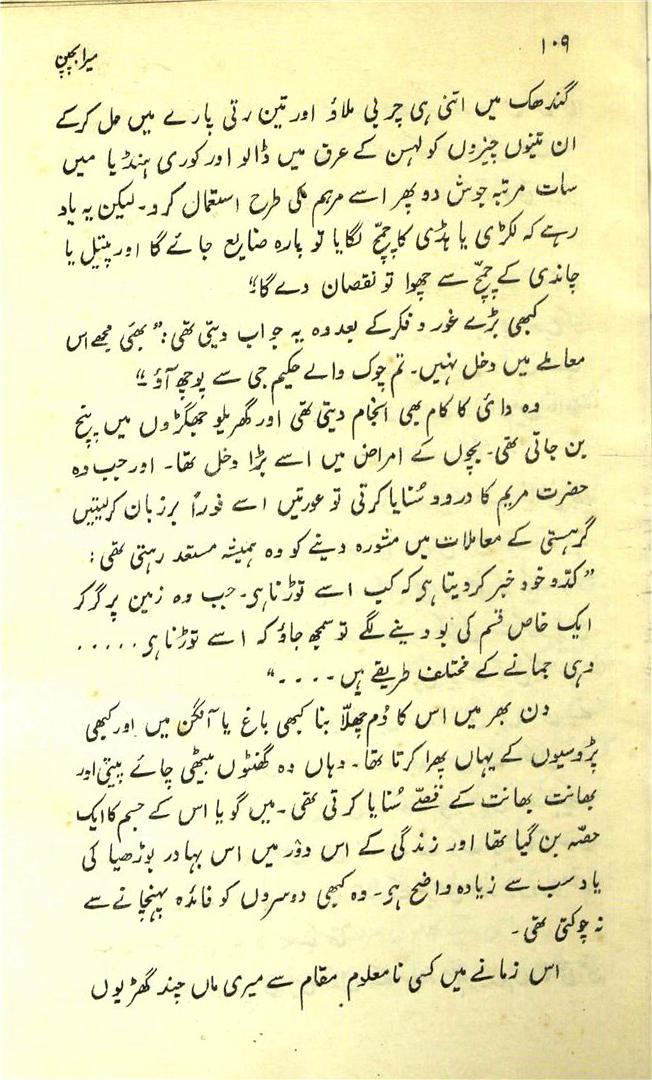 ۱۰۹
میرا بچپن
گندھک میں اتنی ہی چربی ملاؤ اور تین رتی پارے میں حل کرکے
ان تینوں چیزوں کو لہسن کے عرق میں ڈالو اور کوری ہنڈیا میں
سات مرتبہ جوش دو پھر اسے مرہم کی طرح استعمال کرو۔ لیکن یہ یاد
رہے کہ لکڑی یا ہڈی کا چمچّ لگایا تو پارہ ضایع جائے گا اور پیتل یا
چاندی کے چمچّ سے چھوا تو نقصان دے گا۔“
کبھی بڑے غور و فکر کے بعد وہ یہ جواب دیتی تھی: ”بھئی مجھے اس
معاملے میں دخل نہیں۔ تم چوک والے حکیم جی سے پوچھ آؤ۔“
وہ دائی کا کام بھی انجام دیتی تھی اور گھریلو جھگڑوں میں پنچ
بن جاتی تھی۔ بچوں کے امراض میں اسے بڑا دخل تھا۔ اور جب وہ
حضرت مریم کا درود سُنایا کرتی تو عورتیں اسے فوراً برزبان کرلیتیں
گرہستی کے معاملات میں مشورہ دینے کو وہ ہمیشہ مستعد رہتی تھی:
”کدّو خود خبر کردیتا ہی کہ کب اسے توڑنا ہی۔ جب وہ زمین پر گر کر
ایک خاص قسم کی بو دینے لگے تو سمجھ جاؤ کہ اسے توڑنا ہی.....
دہی جمانے کے مختلف طریقے ہیں۔...“
دن بھر میں اس کا دُم چھلّا بنا کبھی باغ یا آنگن میں اور کبھی
پڑوسیوں کے یہاں پھرا کرتا تھا۔ وہاں وہ گھنٹوں بیٹھی چائے پیتی اور
بھانت بھانت کے قصّے سُنایا کرتی تھی۔ میں گویا اس کے جسم کا ایک
حصّہ بن گیا تھا اور زندگی کے اس دوْر میں اس بہادر بوڑھیا کی
یاد سب سے زیادہ واضح ہی۔ وہ کبھی دوسروں کو فائدہ پہنچانے سے
نہ چوکتی تھی۔
اس زمانے میں کسی نامعلوم مقام سے میری ماں چند گھڑیوں